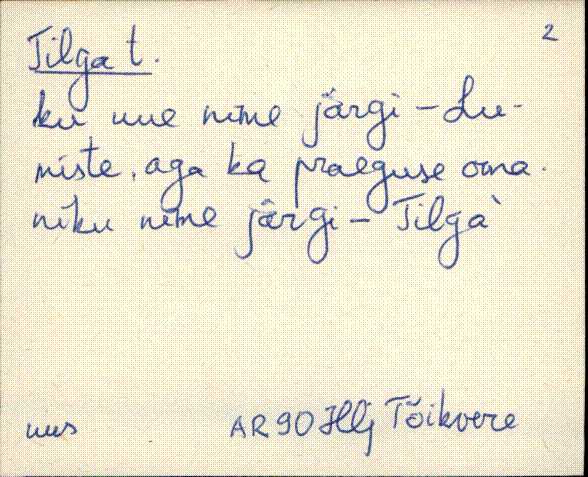 2
Tilga t.
ku uue nime järgi – Lu-
miste, aga ka praeguse oma-
niku nime järgi – Tilga
uus AR 90 Hlj Tõikvere